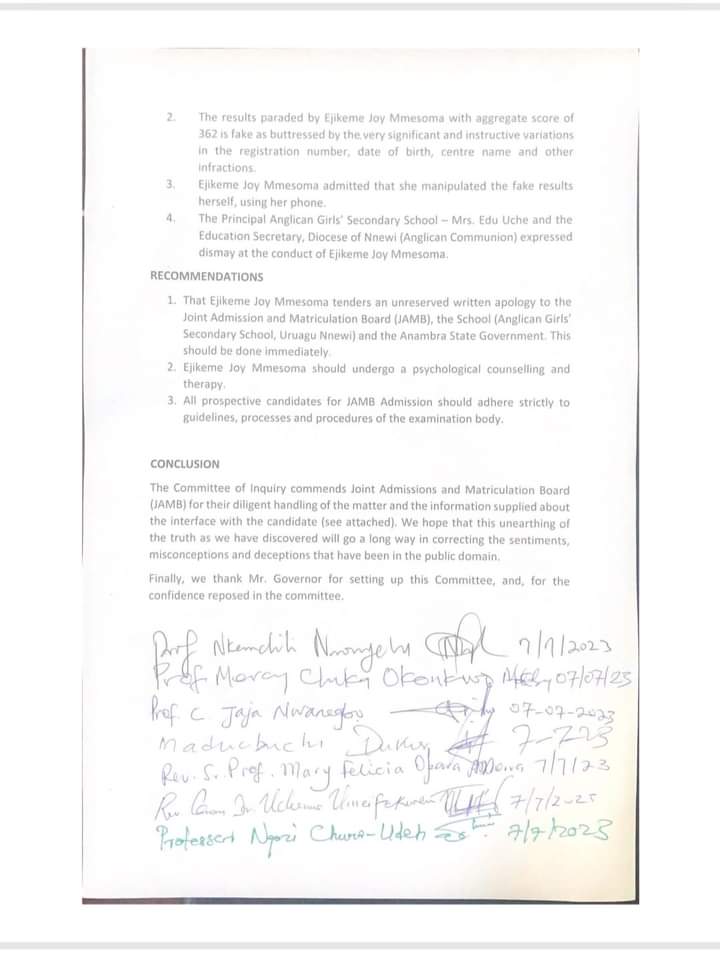 2. The results paraded by Ejikeme Joy Mmesoma with aggregate score of
362 is fake as buttressed by the very significant and instructive variations
in the registration number, date of birth, centre name and other
infractions.
3. Ejikeme Joy Mmesoma admitted that she manipulated the fake results
herself, using her phone.
4. The Principal Anglican Girls' Secondary School – Mrs. Edu Uche and the
Education Secretary, Diocese of Nnewi (Anglican Communion) expressed
dismay at the conduct of Ejikeme Joy Mmesoma.
RECOMMENDATIONS
1. That Ejikeme Joy Mmesoma tenders an unreserved written apology to the
Joint Admission and Matriculation Board (JAMB), the School (Anglican Girls'
Secondary School, Uruagu Nnewi) and the Anambra State Government. This
should be done immediately.
2. Ejikeme Joy Mmesoma should undergo a psychological counselling and
therapy.
3. All prospective candidates for JAMB Admission should adhere strictly to
guidelines, processes and procedures of the examination body.
CONCLUSION
The Committee of Inquiry commends Joint Admissions and Matriculation Board
(JAMB) for their diligent handling of the matter and the information supplied about
the interface with the candidate (see attached). We hope that this unearthing of
the truth as we have discovered will go a long way in correcting the sentiments,
misconceptions and deceptions that have been in the public domain.
Finally, we thank Mr. Governor for setting up this Committee, and, for the
confidence reposed in the committee.
Prof Nkemdili 7/7/2023
Prof Mercy Chuka Okonkwo 07/07/23
Prof C. Jaja Nwanegbo 07-07-2023
Maduabuchi
Rev. Sr. Prof. Mary Felicia Opara 7/7/23
Rev Canon Dr.
Professor Ngozi Chuma-Udeh 7/7/2023